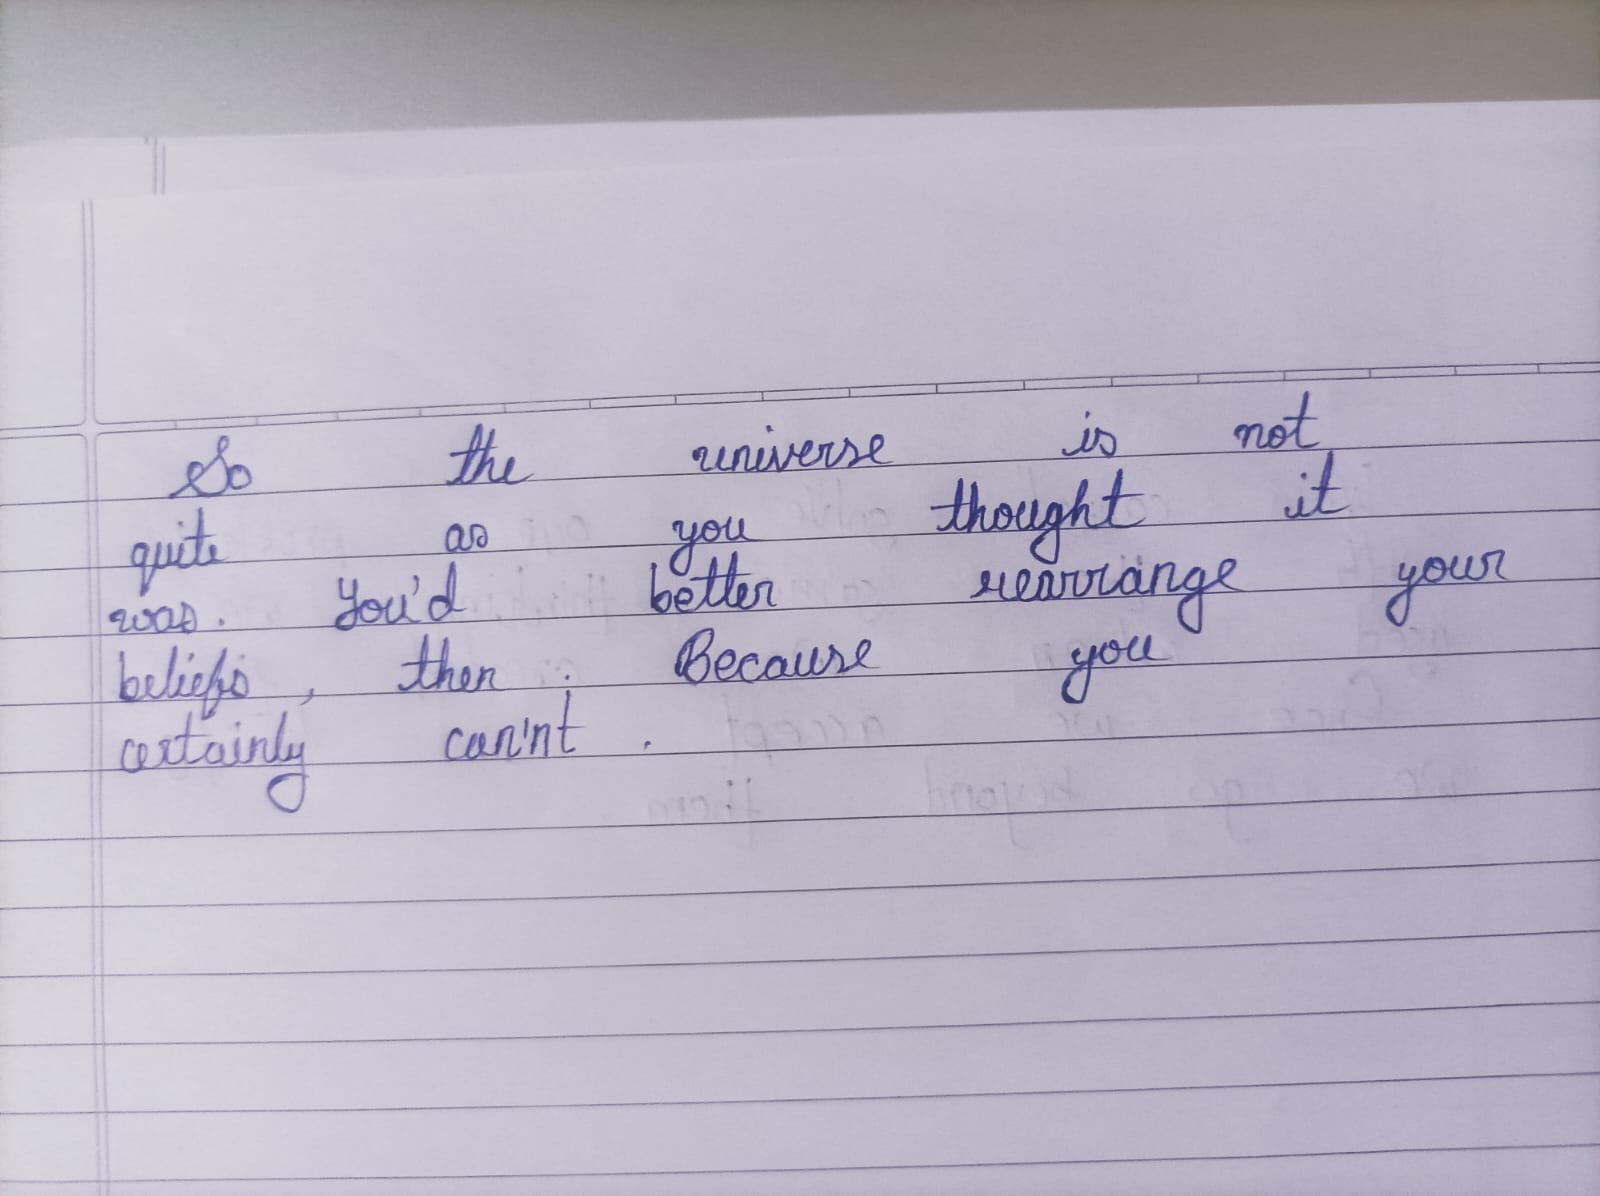 So the universe is not
quite as you thought it
was. You'd better rearrange your
beliefs, then. Because you
certainly can'nt.